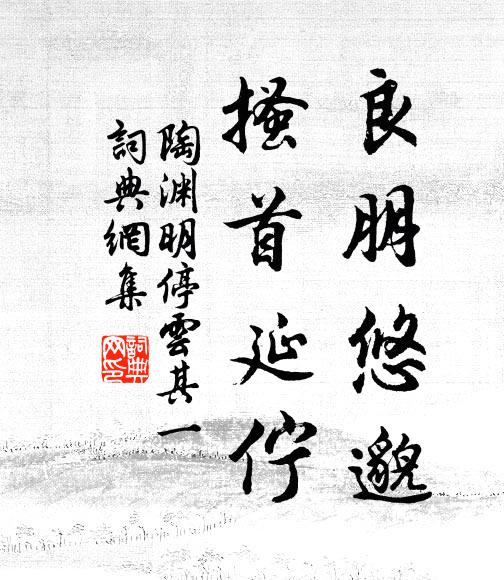 良朋悠邈
搔首延佇
陶渊明停雲其一
詞典網集
詞典
网印